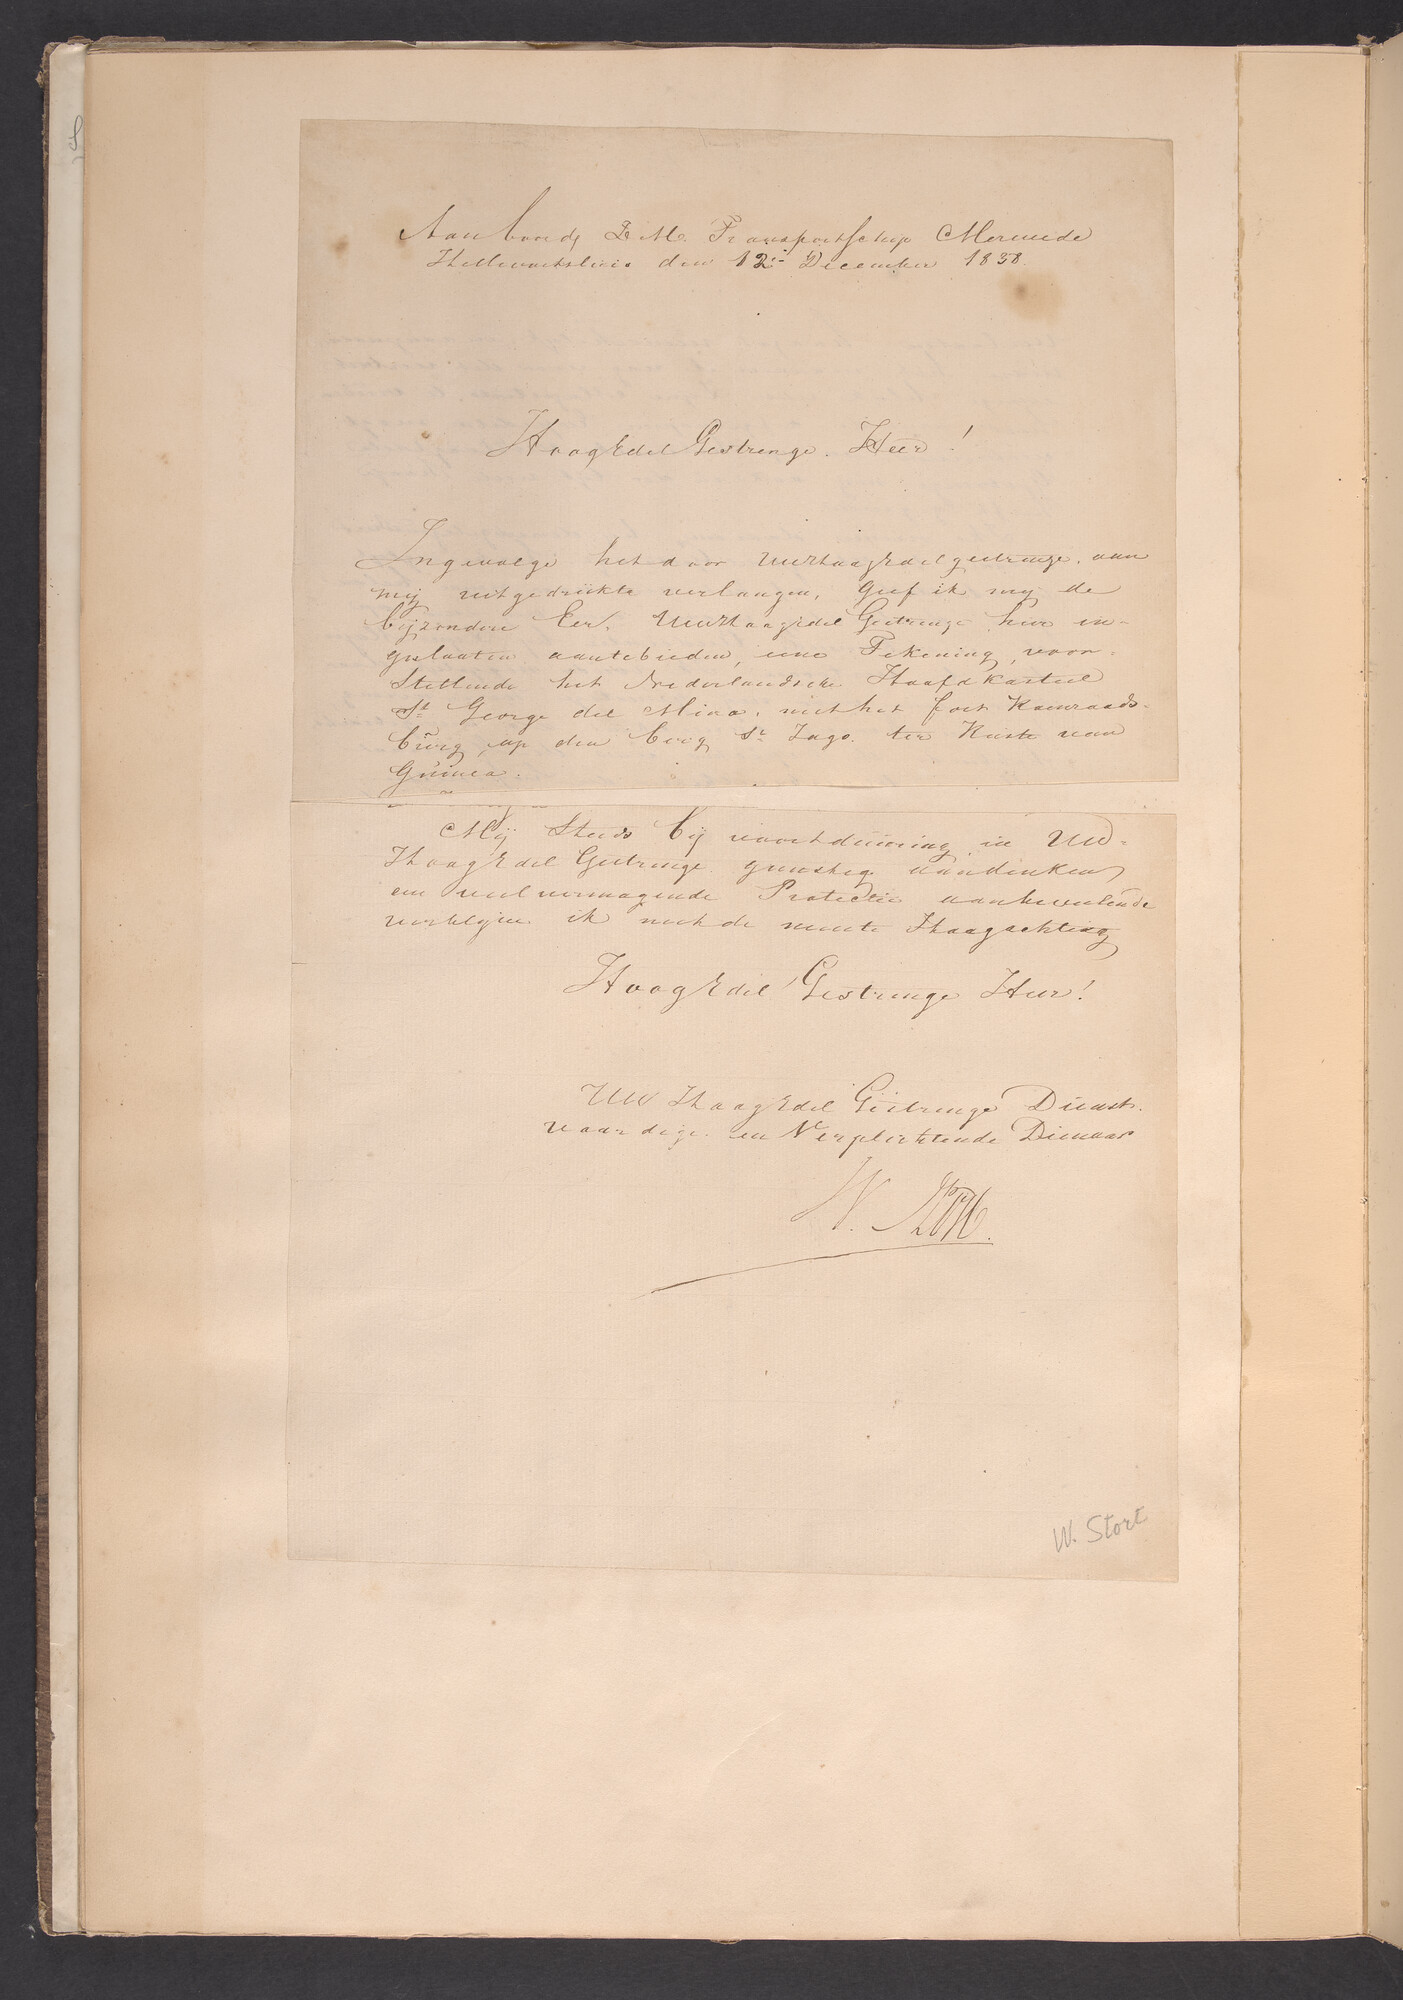 Aan boord, Z M. Transportschip Merwede
Hellevoetsluis den 12e December 1838.
HoogEdelGestrenge. Heer!
Ingevolge het door UwHoogEdelgestrenge, aan
mij uitgedrükte verlangen, geef ik mij de
bijzondere Eer, UwHoogEdel Gestrenge hier in-
geslooten aantebieden, eene Tekening, voor-
Stellende het Nederlandsche Hoofdkasteel
St. George del Mina, met het fort Koenraads-
bürg, op den berg St. Jago. ter Kuste van
Guinea.
Mij Steeds bij voortdüüring in UW-
HoogEdel Gestrenge gunstig aandenken,
en veelvermogende Protectie aanbevelende
verblijve ik met de meeste Hoogachting
HoogEdel Gestrenge Heer!
UW HoogEdel Gestrenge Dienst-
vaardige en Verplichtende Dienaar
W. Stort.
W. Stort